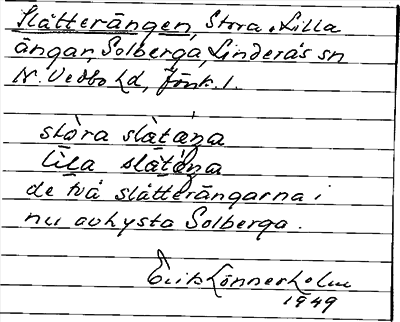 Slåtterängen, Stora o. Lilla
ängar, Solberga, Linderås sn
N. Vedbo hd, Jönk. l.
stòra slàtæŋa
lìla slàtæŋa
de två slåtterängarna i
nu avhysta Solberga.
Erik Lönnerholm
1949